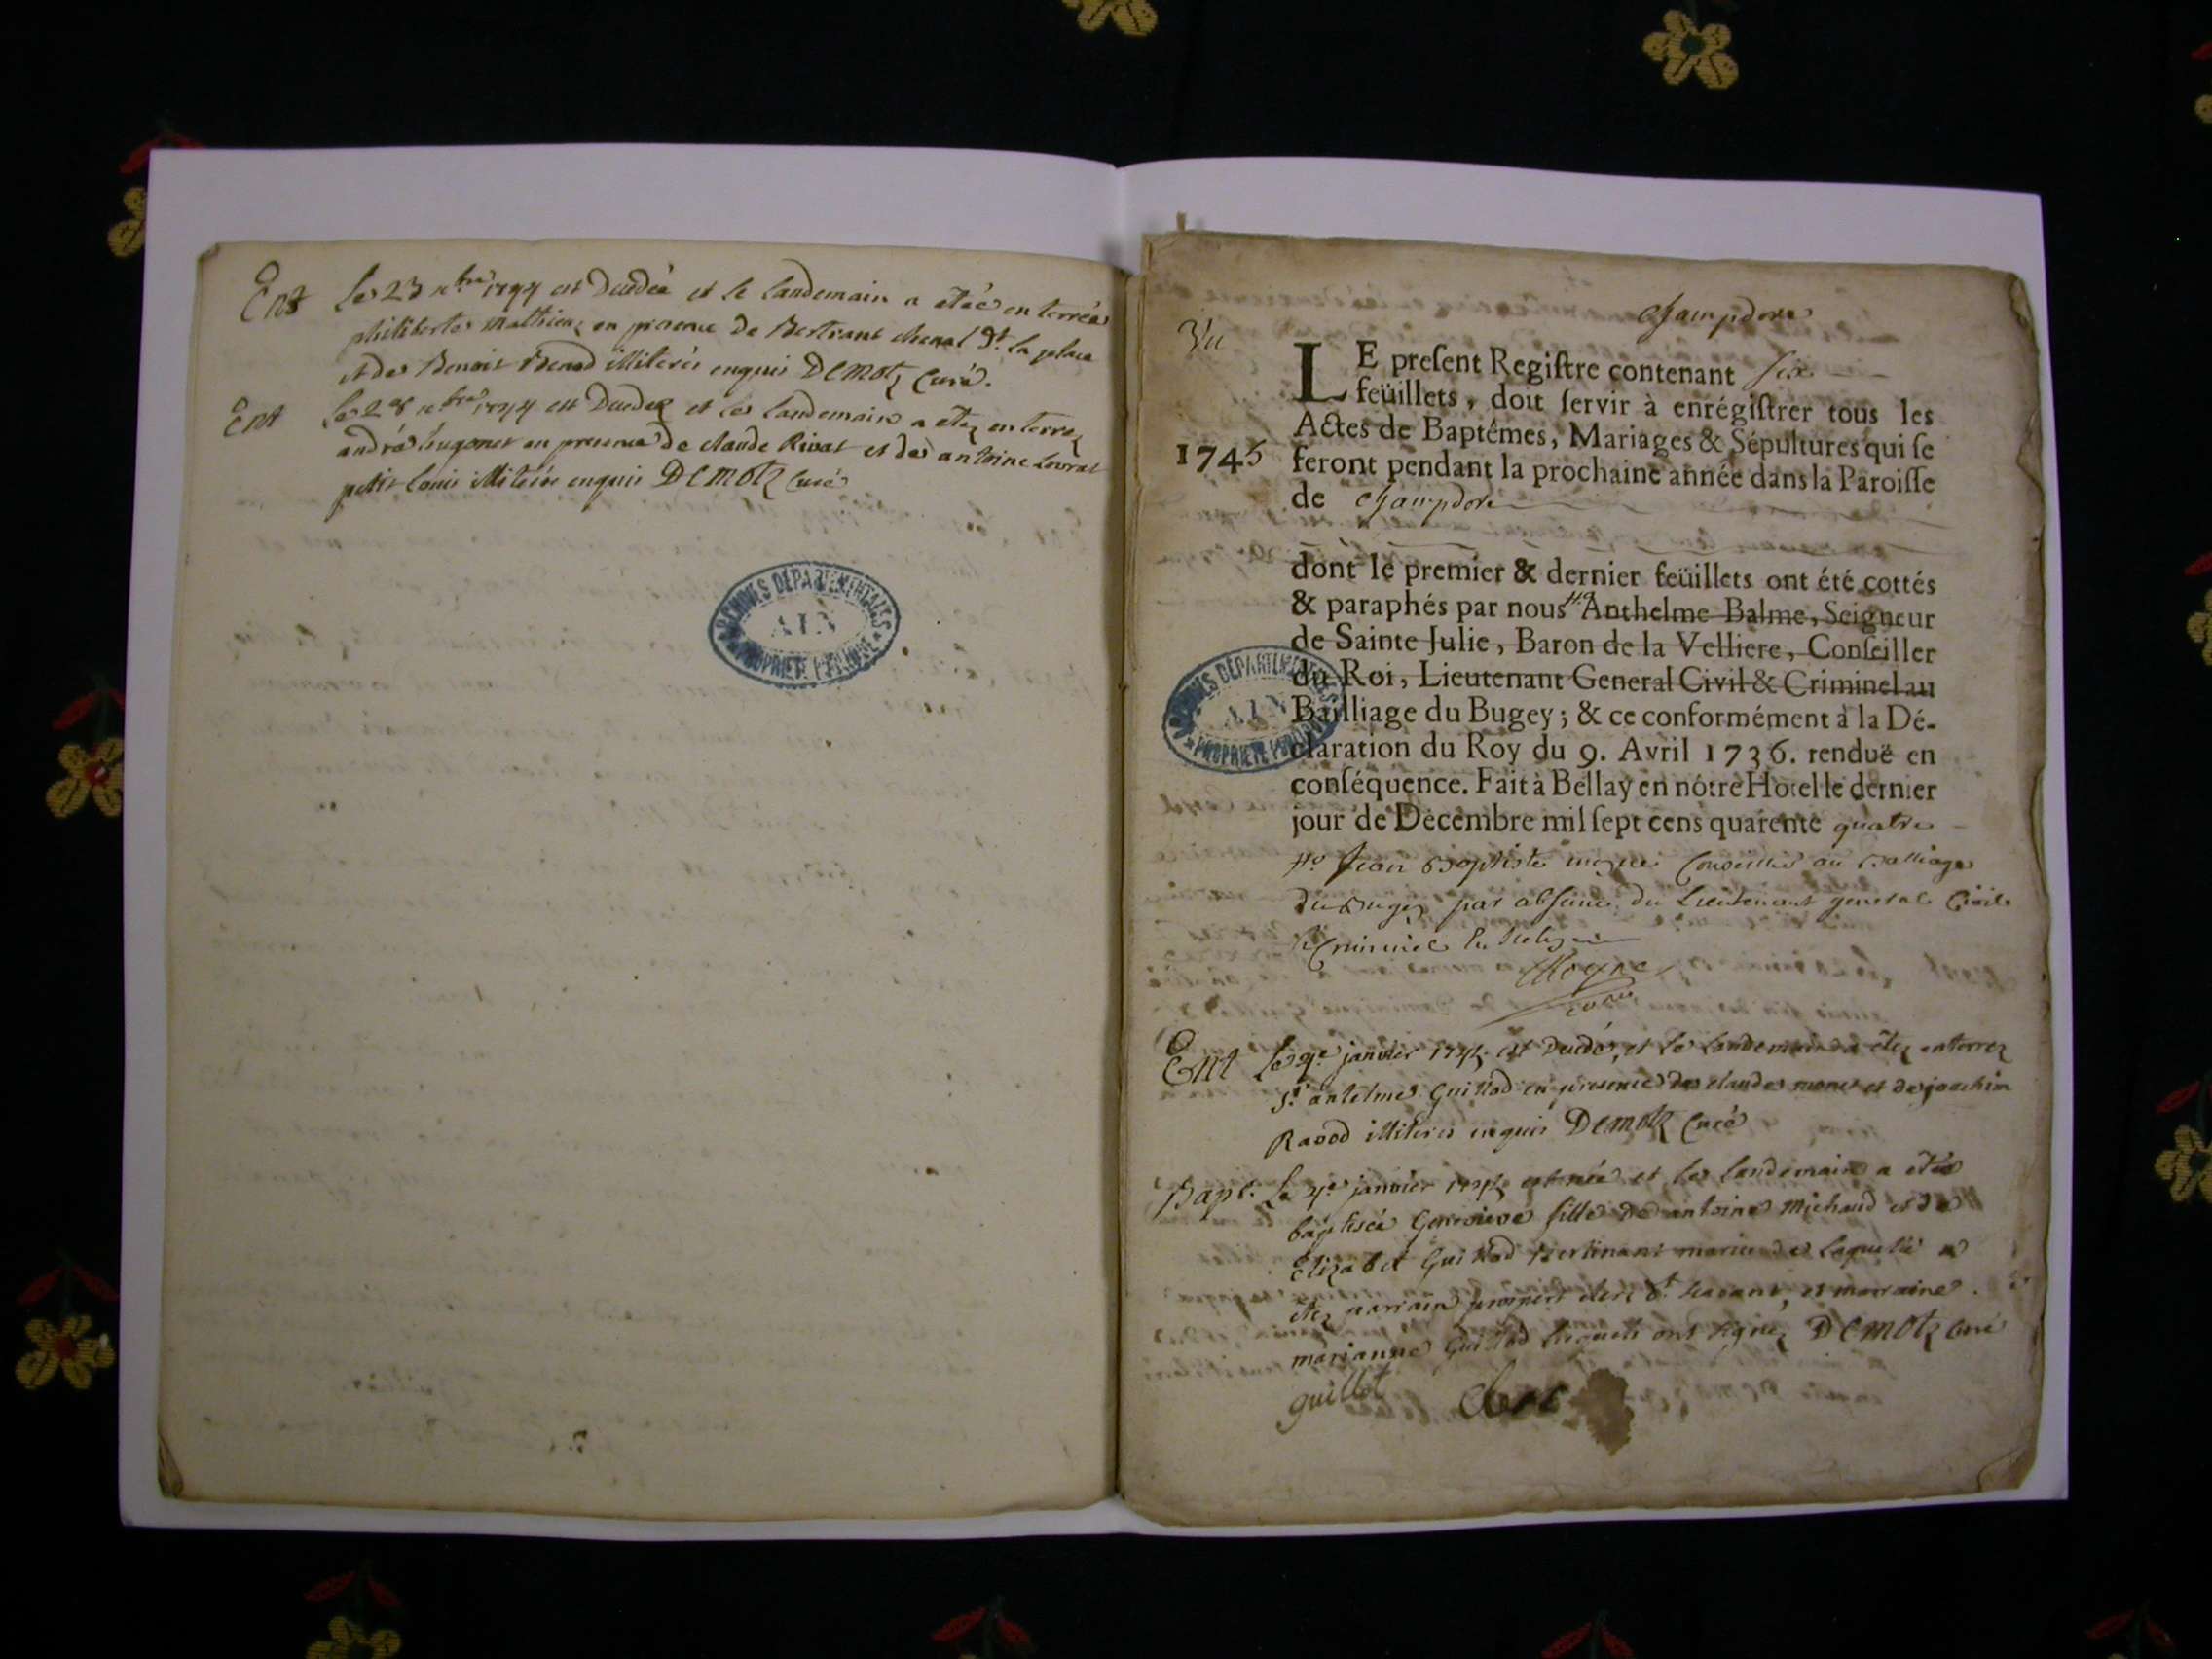 Ent Le 23 xbre 1744 est Decedée et le landemain a etée enterrée
philiberte Mathieu en presence de Bertrant chenal dt la place
et de Benoit Benod illiterés enquis DEMOTZ Curé.
Ent Le 28 xbre 1744 est Decedez et le landemain a etez enterrez
andré hugonet en presence de claude Rivat et de antoine
petit Louis illiterés enquis DEMOTZ Curé
ARCHIVES DÉPARTEMENTALES
AIN
PROPRIETE PUBLIQUE
Champdore
Vu
LE preſent Regiſtre contenant six
feüillets, doit ſervir à enrégiſtrer tous les
Actes de Baptêmes, Mariages & Sépultures qui ſe
1745 feront pendant la prochaine année dans la Paroiſſe
de Champdore
dont le premier & dernier feüillets ont été cottés
& paraphés par nous Anthelme Balme, Seigneur
de Sainte Julie, Baron de la Velliere, Conſeiller
du Roi, Lieutenant General Civil & Criminel au
Bailliage du Bugey; & ce conformément à la Dé-
claration du Roy du 9. Avril 1736. renduë en
conſéquence. Fait à Bellay en nôtre Hotel le dernier
jour de Decembre mil ſept cens quarente quatre
Jean Baptiste Conseiller au Balliage
du Bugey par absence du Lieutenant general Civil
Criminel
ARCHIVES DÉPARTEMENTALES
AIN
PROPRIETE PUBLIQUE
Ent Le janvier est Decedé, et le landemain a etez enterrez
Sr antelme Guillod en presence de claude monet et de joachim
Ravod illiterés enquis DEMOTZ Curé
Bapt. Le janvier est née et le landemain a etée
baptisée Genevieve fille de antoine Michaud et de
Elizabet Guillod mariés de laquelle a
etez parrain clerc dt et marraine
marianne Guillod lesquels ont signez DEMOTZ Curé
guillot Clerc